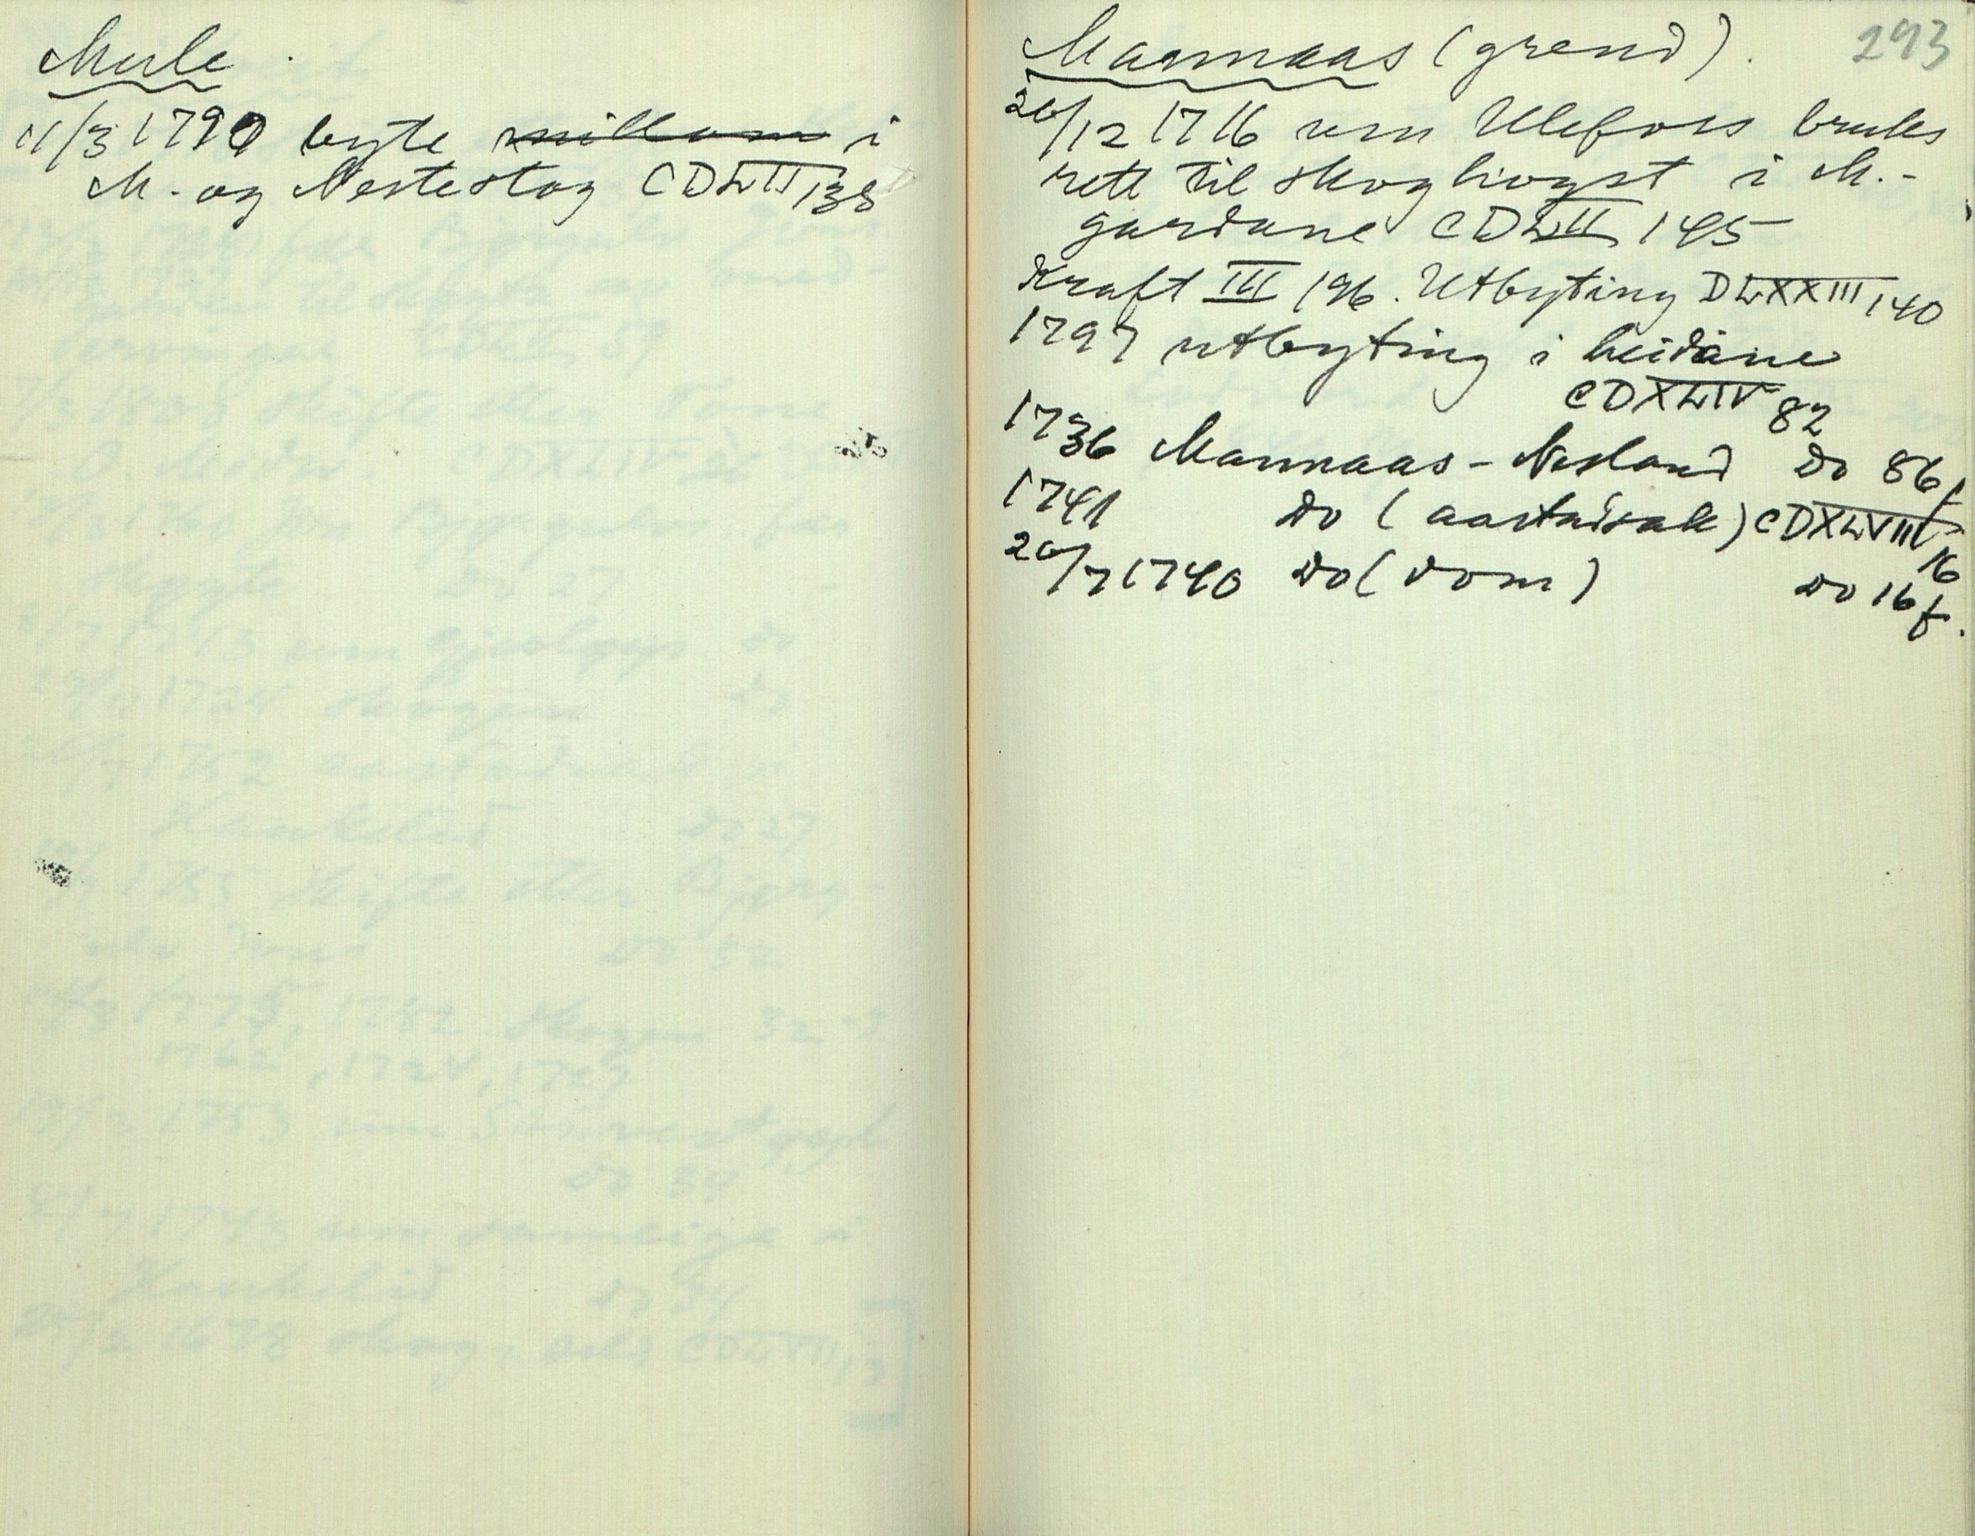 Mule
11/3 1790 byte millom i
M. og Nestestog CDLII, 138
293
Mannaas (grend).
26/12 1716 um Ulefoss bruks
rett til skoghogst i M.-
gardane CDLII, 145
Kraft III 196. Utbyting DLXXIII, 140
1797 utbyting i heidane
CDXLIV 82
1736 Mannaas - Nesland do 86f
1741 do (aastadsak) CDXLVIII
16
20/7 1740 do (dom) do 16f.